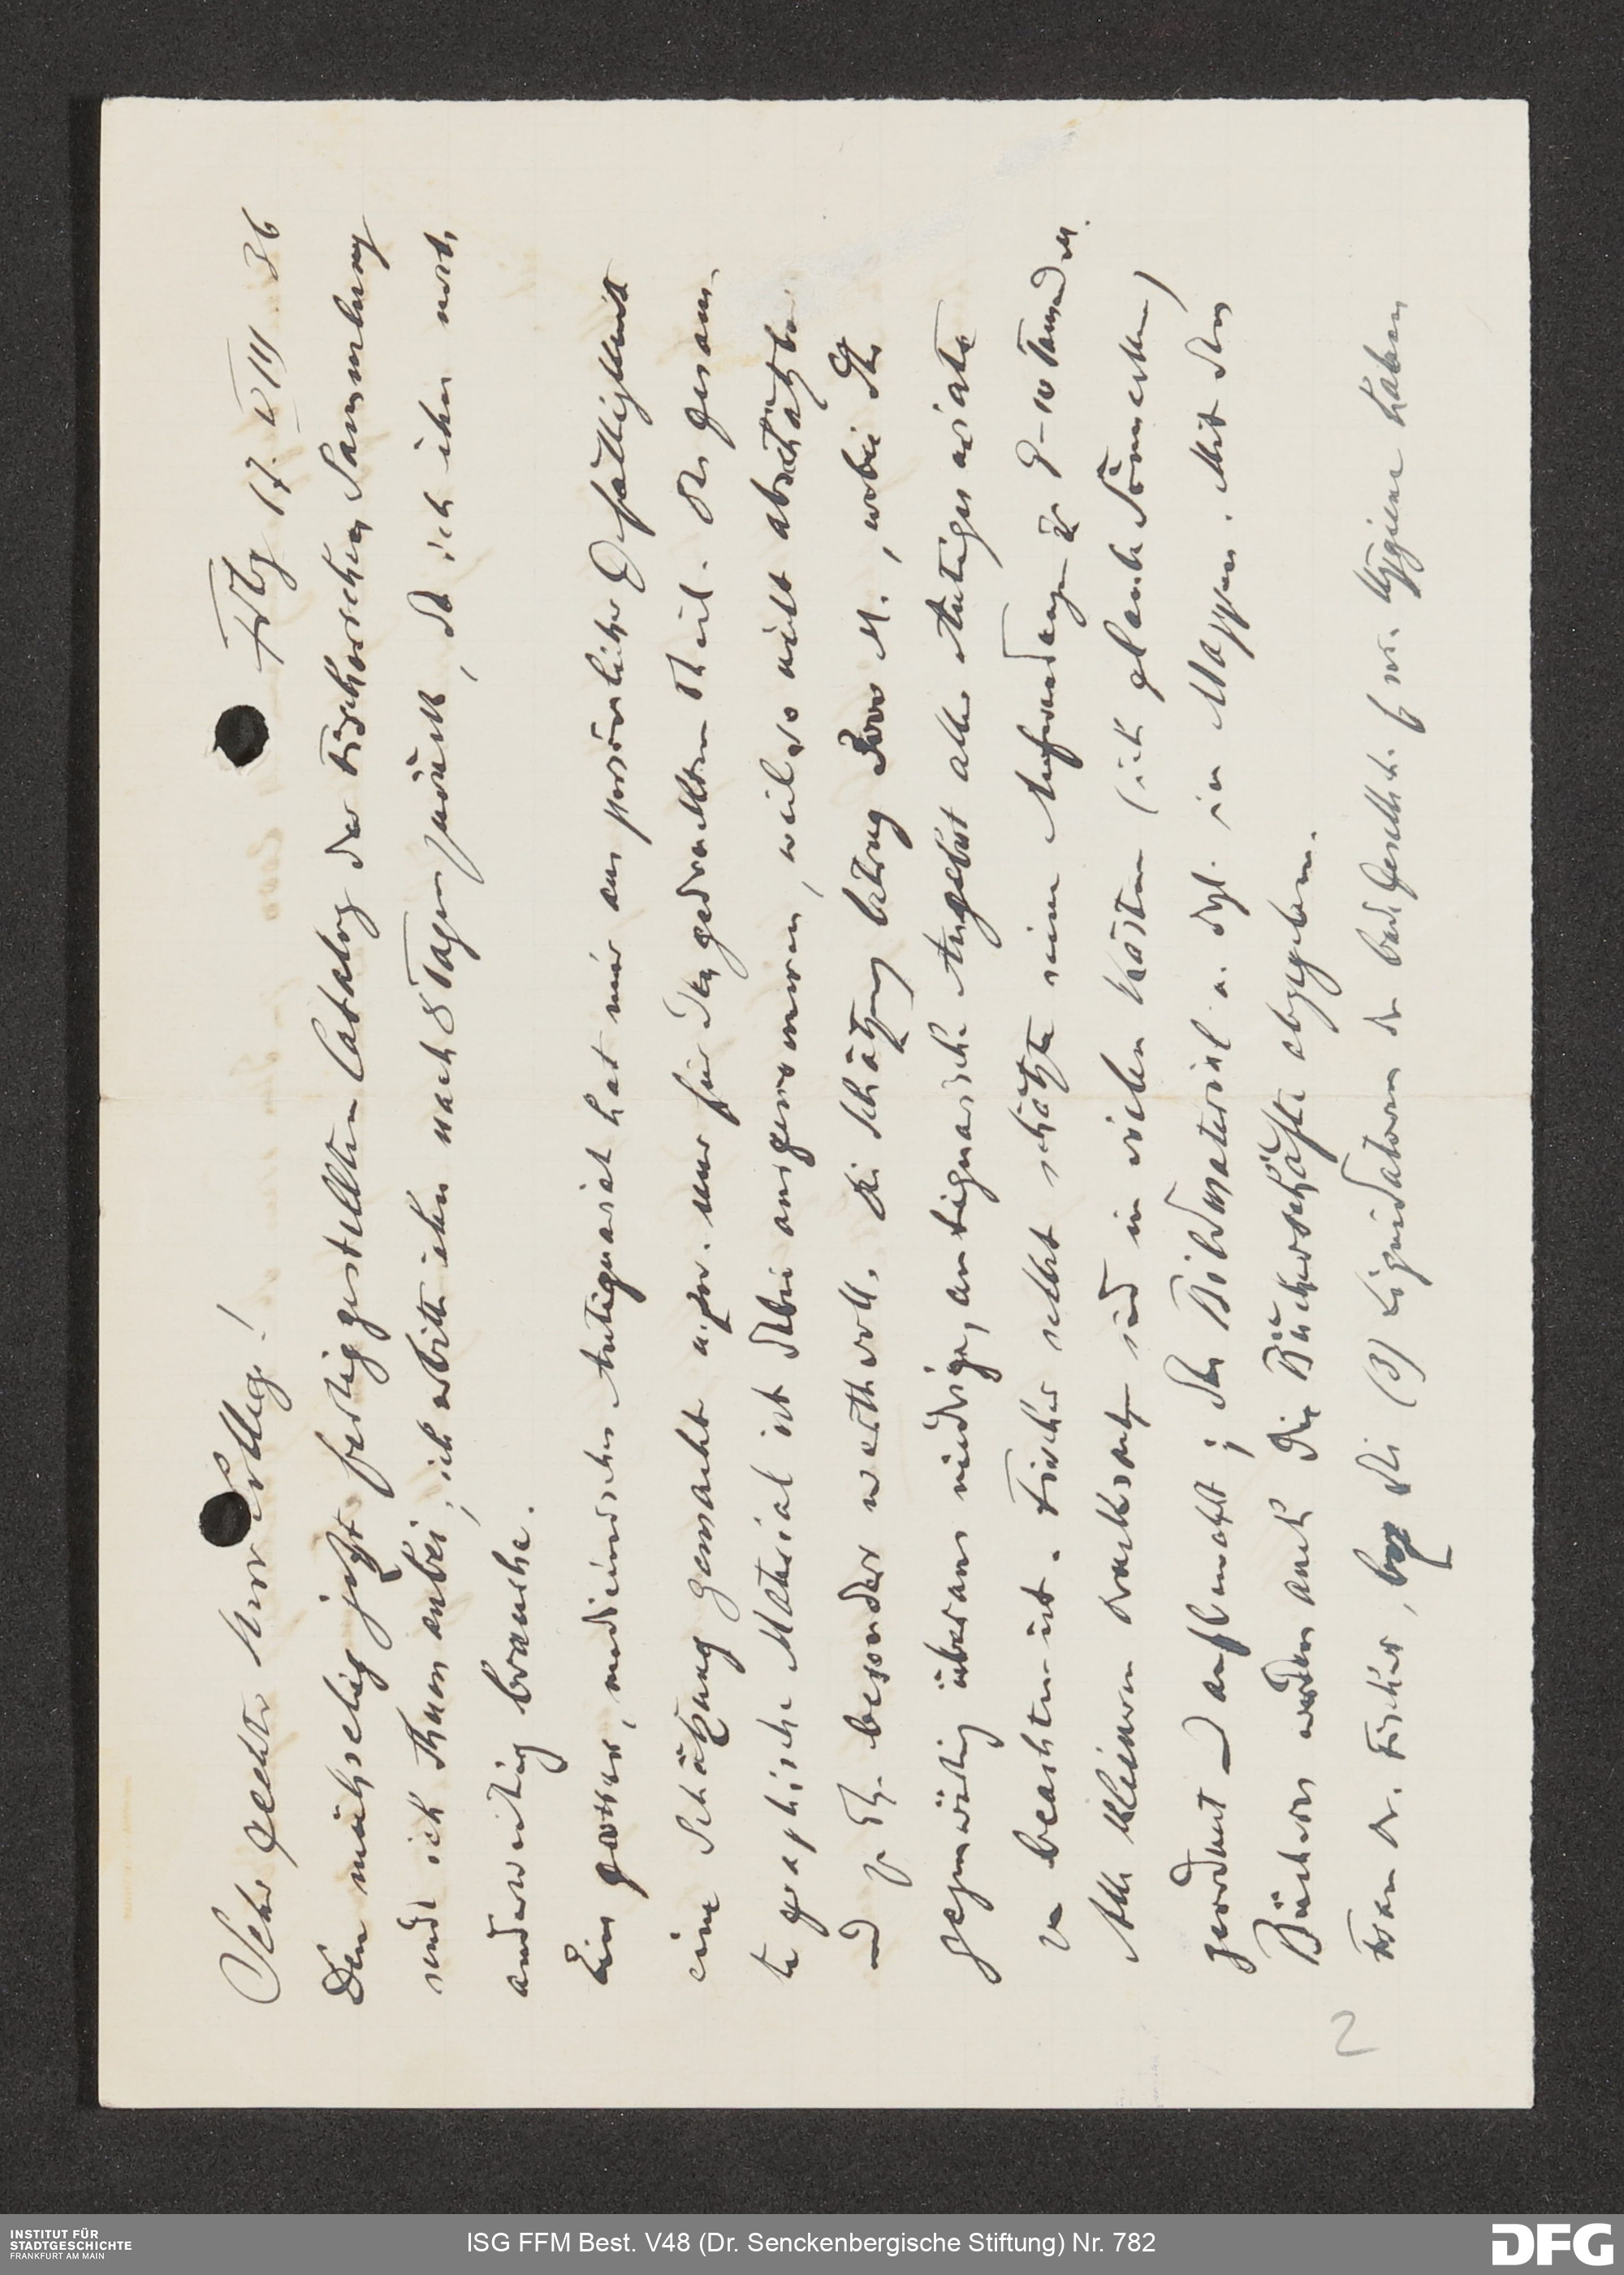 Sehr geehrter Herr College! Frkfg 17. VIII 36
Den mühselig jetzt fertiggestellten Catalog der Fischerschen Sammlung
sende ich Ihnen anbei, ich erbitte ihn nach 8 Tagen zurück, da ich ihn noch
anderweitig brauche.
Ein grosser, medicinischer Antiquariat hat mir aus persönlicher Gefälligkeit
eine Schätzung gemacht u. zw. nur für den gedruckten Theil. Das gesam-
te graphische Material ist dabei ausgenommen, weil so nicht abschätzbar
und z. Th. besonders werthvoll. Die Schätzung betrug 3000 M., wobei der
gegenwärtig überaus niedrige, antiquarische Angebot aller Antiquariate
zu beachten ist. Fischer selbst schätzte seine Aufwendungen 9-10 Tausend M.
Alle kleineren Drucksachen sind in vielen Kästen (ich glaube Sömmeck)
geordnet und aufbewahrt; das Bildmaterial u. dgl. in Mappen. Mit den
Büchern werden auch die Bücherschäfte abgegeben.
Frau Dr. Fischer, bezw. die (3) Liquidatoren der Ges. f. soz. Hygiene haben
2
INSTITUT FÜR
STADTGESCHICHTE
FRANKFURT AM MAIN
ISG FFM Best. V48 (Dr. Senckenbergische Stiftung) Nr. 782
DFG